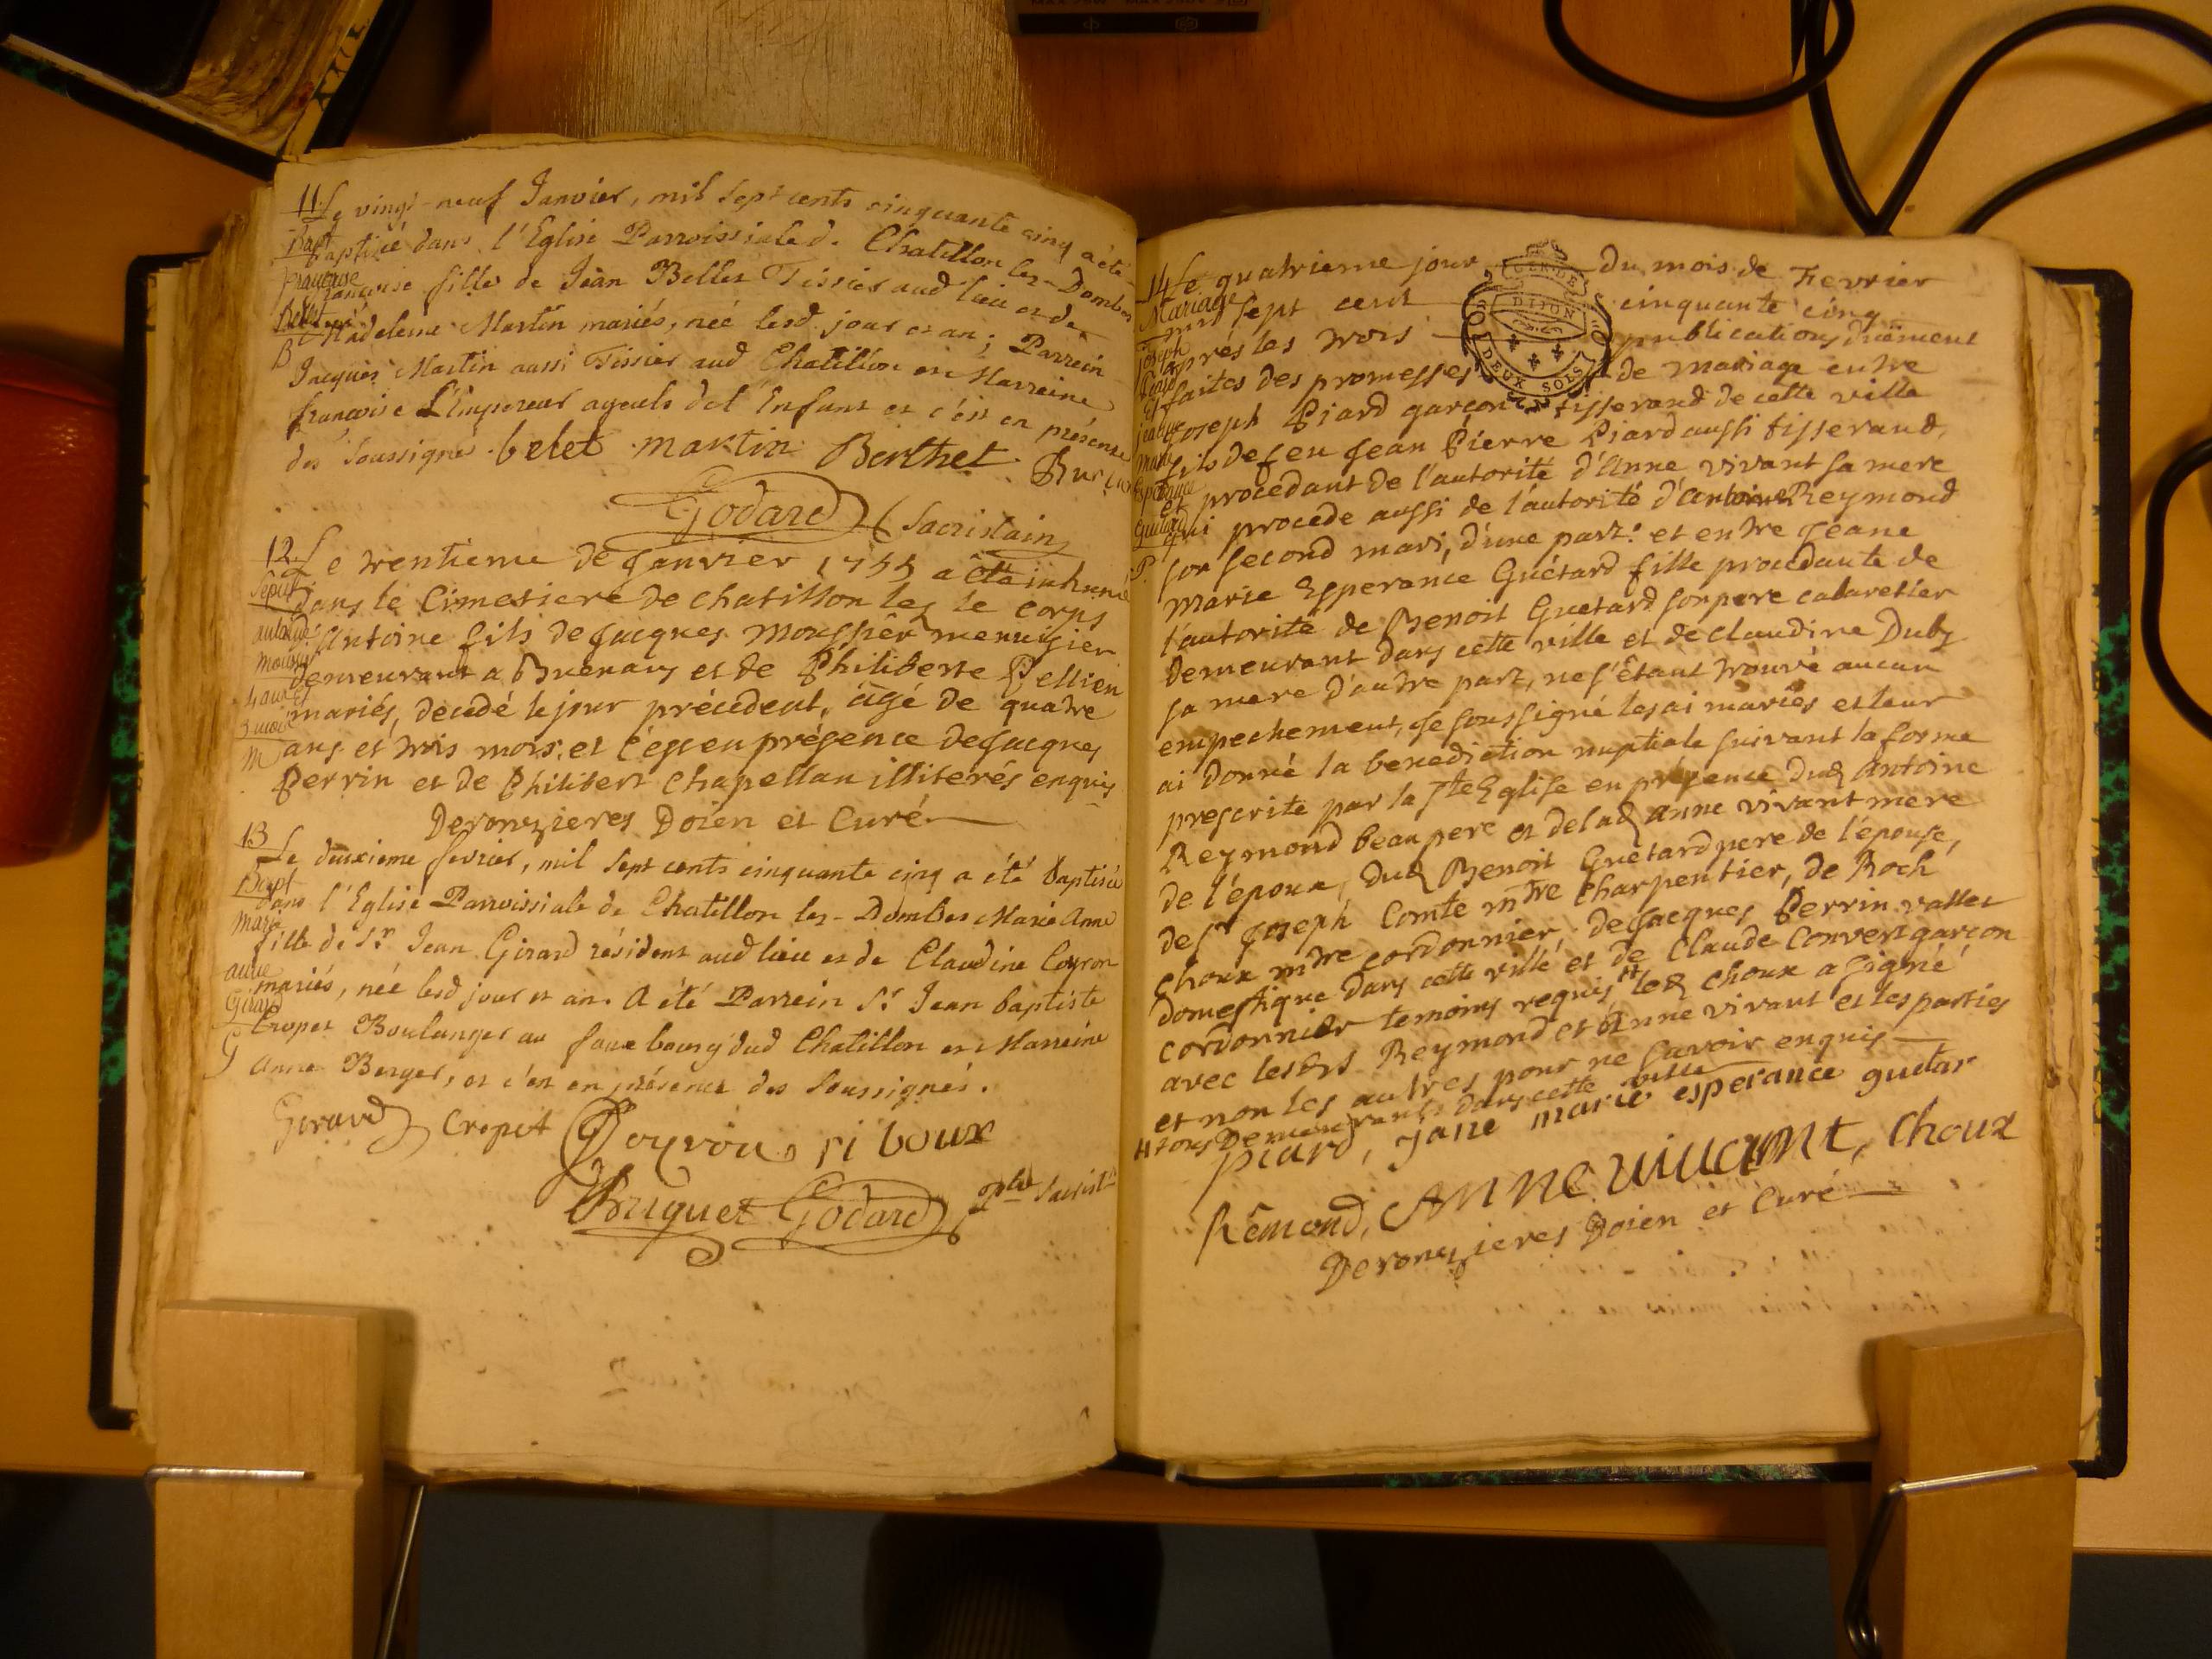 11 Le vingt-neuf Janvier, mil sept cents cinquante cinq a été
Bapt
baptisé dans l'Eglise Parroissiale de Chatillon les-Dombes
françoise
francoise fille de Jean Bellet Tissier aud lieu et de
Bellet
Madeleine Martin mariés, née lesd jour et an; Parrein
B
Jacques Martin aussi Tissier aud Chatillon et Marreine
francoise L'Empereur ayeuls dud Enfant et c'est en présence
des soussignés. belet martin Berthet
Godard Sacristain
12 Le trentieme de Janvier 1755 a été inhumé
Sepult
dans le Cimetiere de chatillon les le corps
d'antoine fils de Jacques Moussier menuisier
demeurant a Buenans et de Philiberte Pellien
4 ans et
mariés, decedé le jour précedent, âgé de quatre
3 mois
M
ans et trois mois, et c'est en présence de Jacques
Perrin et de Philibert Chapellan illiterés enquis
Deronzieres Doïen et Curé
13
Le deuxieme fevrier, mil sept cents cinquante cinq a été baptisée
Bapt
dans l'Eglise Parroissiale de Chatillon les-Dombes Marie Anne
marie
fille de Sr. Jean Girard résident aud lieu et de Claudine Coyron
anne
mariés, née lesd jour et an. A été Parrein Sr. Jean baptiste
Girard
Cropet Boulanger au faux bourg dud Chatillon et Marreine
G
Anne Berger, et c'est en présence des soussignés.
Girard Cropet Coyron riboux
Bruguet Godard Ptre Sacrist
14 Le quatrieme jour du mois de Fevrier
Mariage
mil sept cent cinquante cinq
GEN DE DIJON DEUX SOLS
joseph
après les trois publications düement
Piard
faites des promesses de mariage entre
et
jeanne
Joseph Piard garçon tisserand de cette ville
marie
fils de feu Jean Pierre Piard aussi tisserand,
Esperance
procedant de l'autorité d'Anne vivant sa mere
Guetard
qui procede aussi de l'autorité d'antoine Reymond
P
son second mari, d'une part: et entre Jeane
Marie Esperance Guétard fille procedante de
l'autorité de Benoit Guetard son pere cabaretier
demeurant dans cette ville et de claudine Duby
sa mere d'autre part, ne s'étant trouvé aucun
empechement, Je soussigné les ai mariés et leur
ai donné la benediction nuptiale suivant la forme
prescrite par la Ste Eglise en présence dud Antoine
Reymond beau pere et de lad Anne vivant mere
de l'époux, dud Benoit Guétard pere de l'épouse,
de Sr Joseph Comte mtre charpentier, de Roch
choux mtre cordonnier, de Jacques Perrin vallet
domestique dans cette ville et de Claude Convert garçon
cordonnier temoins requis # led choux a signé
avec lesds Reymond et Anne vivant et les parties
et non les autres pour ne savoir enquis
# tous demeurants dans cette ville
piard, jane marie esperance guetar
Rémond, Anne vivant, choux
Deronzieres Doïen et Curé